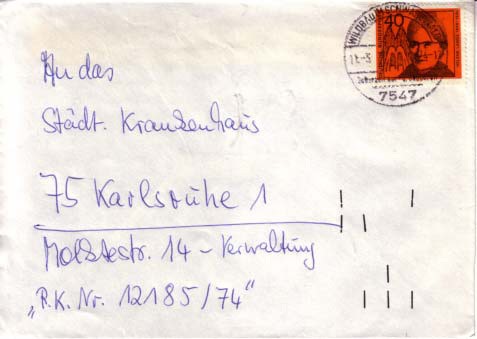 40
WILDBAD
7547
An das
Städt. Krankenhaus
75 Karlsruhe 1
Moltkestr. 14 - Verwaltung
„R.K. Nr. 12185/74"